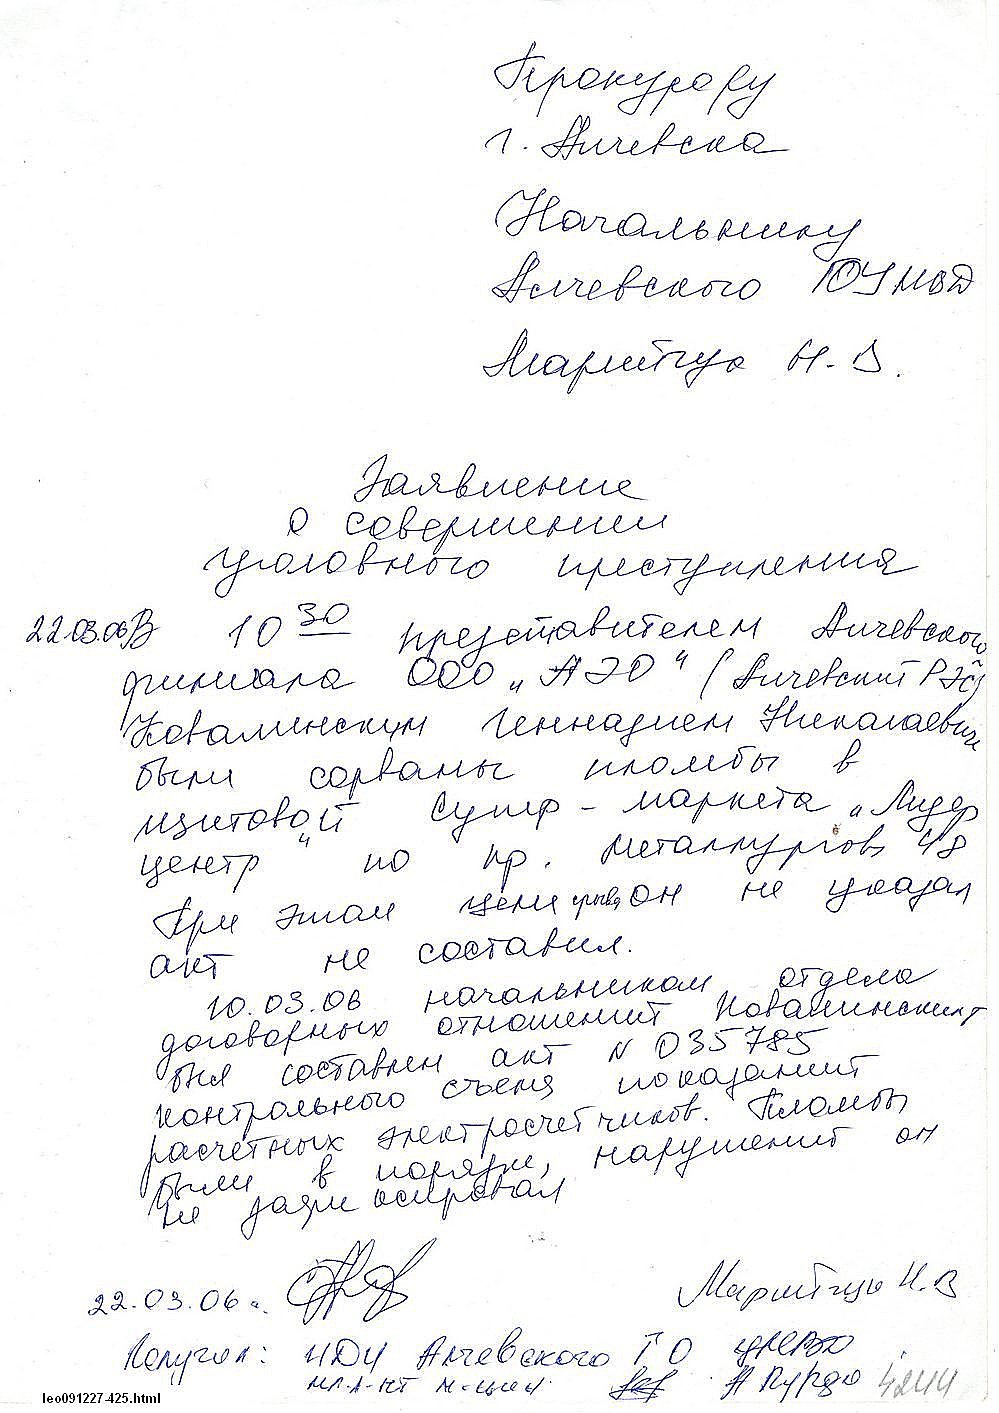 Прокурору
г. Алчевска
Начальнику
Алчевского ГОУМВД
Н. В.
Заявление
о совершении
уголовного преступления
22.03.06 В 10 30 представителем Алчевского
филиала ООО „АЭО" (Алчевский РЭС)
Ковалинским Геннадием Николаевиче
были сорваны пломбы в
щитовой супер-маркета „Лидер
центр" по пр. Металлургов 48
При этом цели срыва он не указал
акт не составил.
10.03.06 начальником отдела
договорных отношений Ковалинским
был составлен акт N 035785
контрольного съема показаний
расчетных электросчетчиков. Пломбы
были в порядке, нарушений он
не зафиксировал
22.03.06 г. Н. В
Получил: Алчевского ГО
м-ции 4244
leo091227-425.html